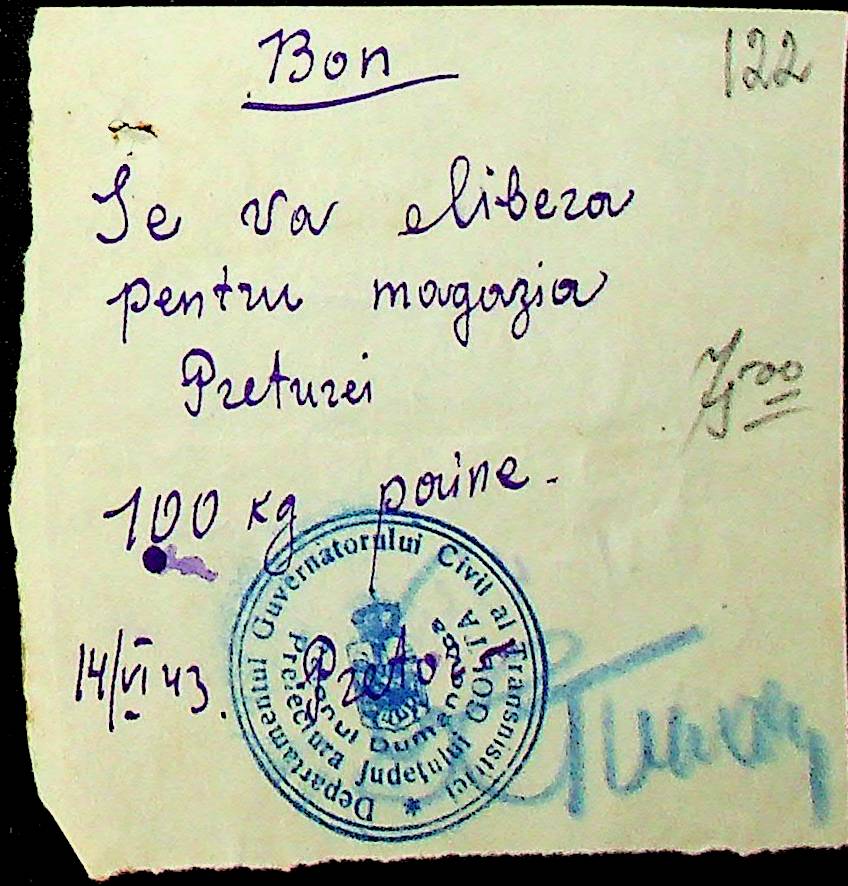 Bon
122
Se va elibera
pentru magazia
Preturei
100 kg paine.
14/VI 43. Pretor
Departamentul Guvernatorului Civil al Transnistriei
Prefectura Judeţului GOLTA